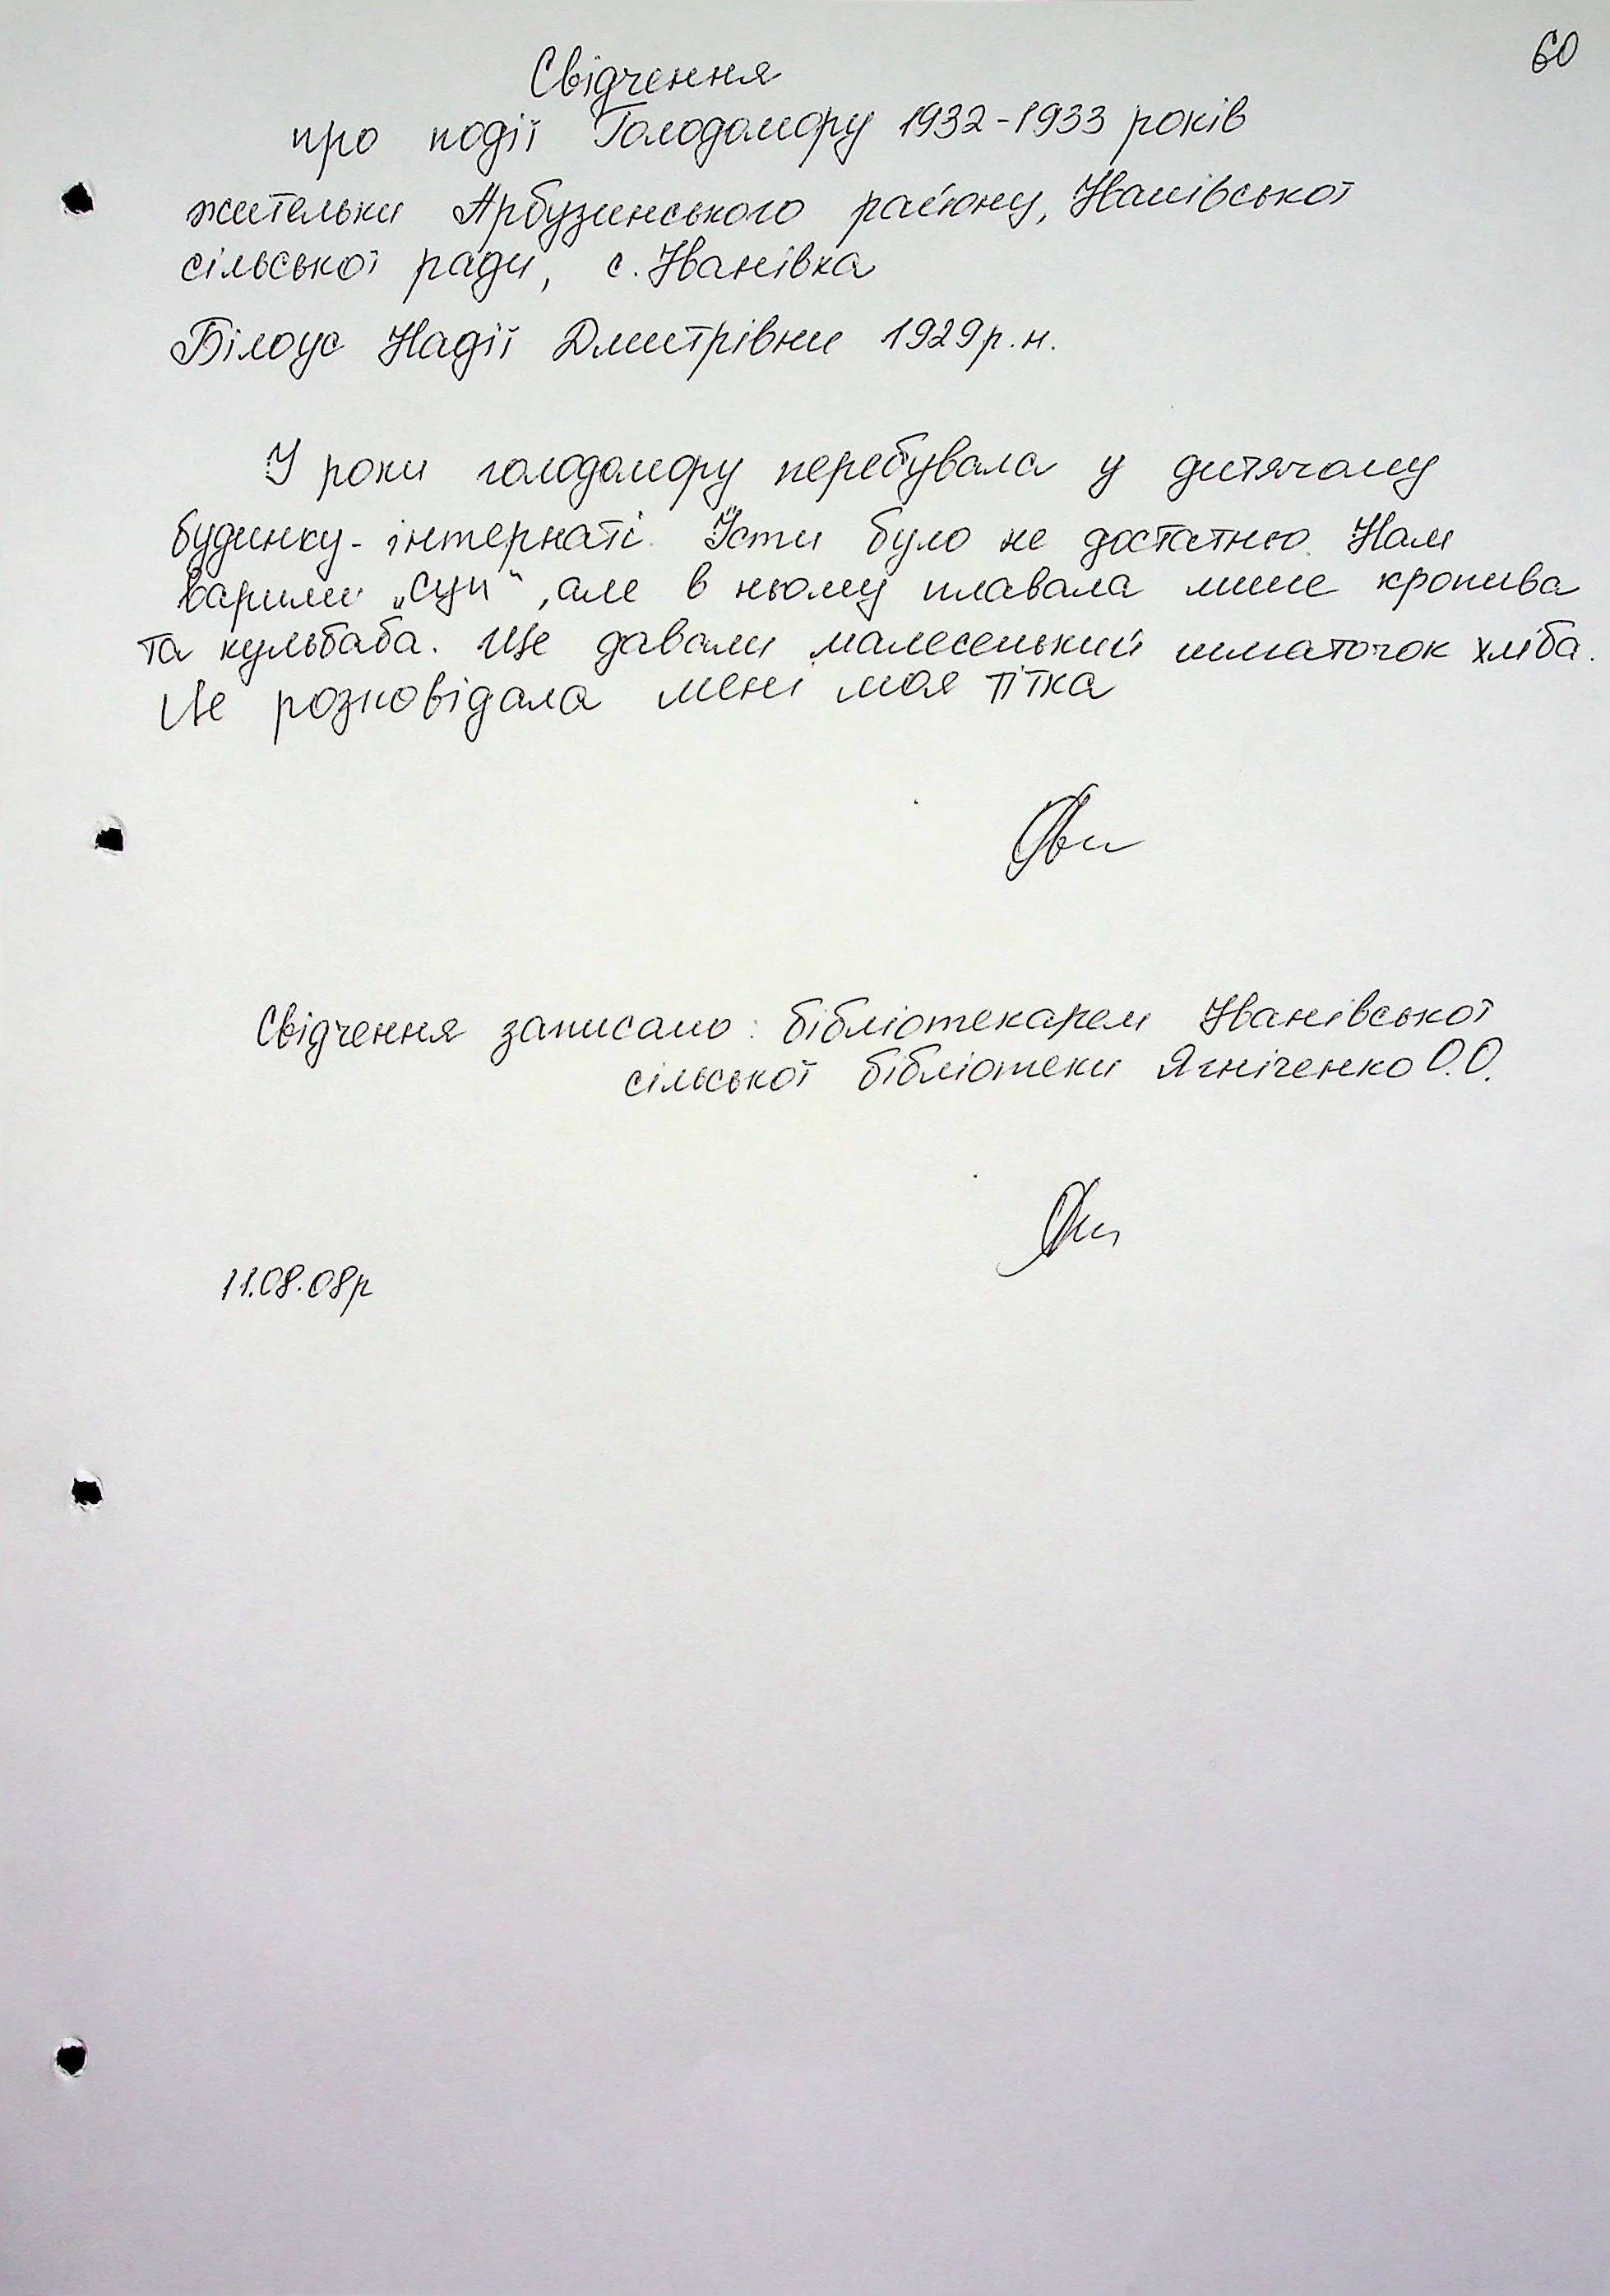 60
Свідчення
про події Голодомору 1932-1933 років
жительки Арбузинського району, Іванівської
сільської ради, с. Іванівка
Білоус Надії Дмитрівни 1929р.н.
У роки голодомору перебувала у дитячому
будинку-інтернаті. Їсти було не достатньо. Нам
варили „суп“, але в ньому плавала лише кропива
та кульбаба. Ще давали малесенький шматочок хліба.
Це розповідала мені моя тітка
Свідчення записано: бібліотекарем Іванівської
сільської бібліотеки Ягніченко О.О.
11.08.08р